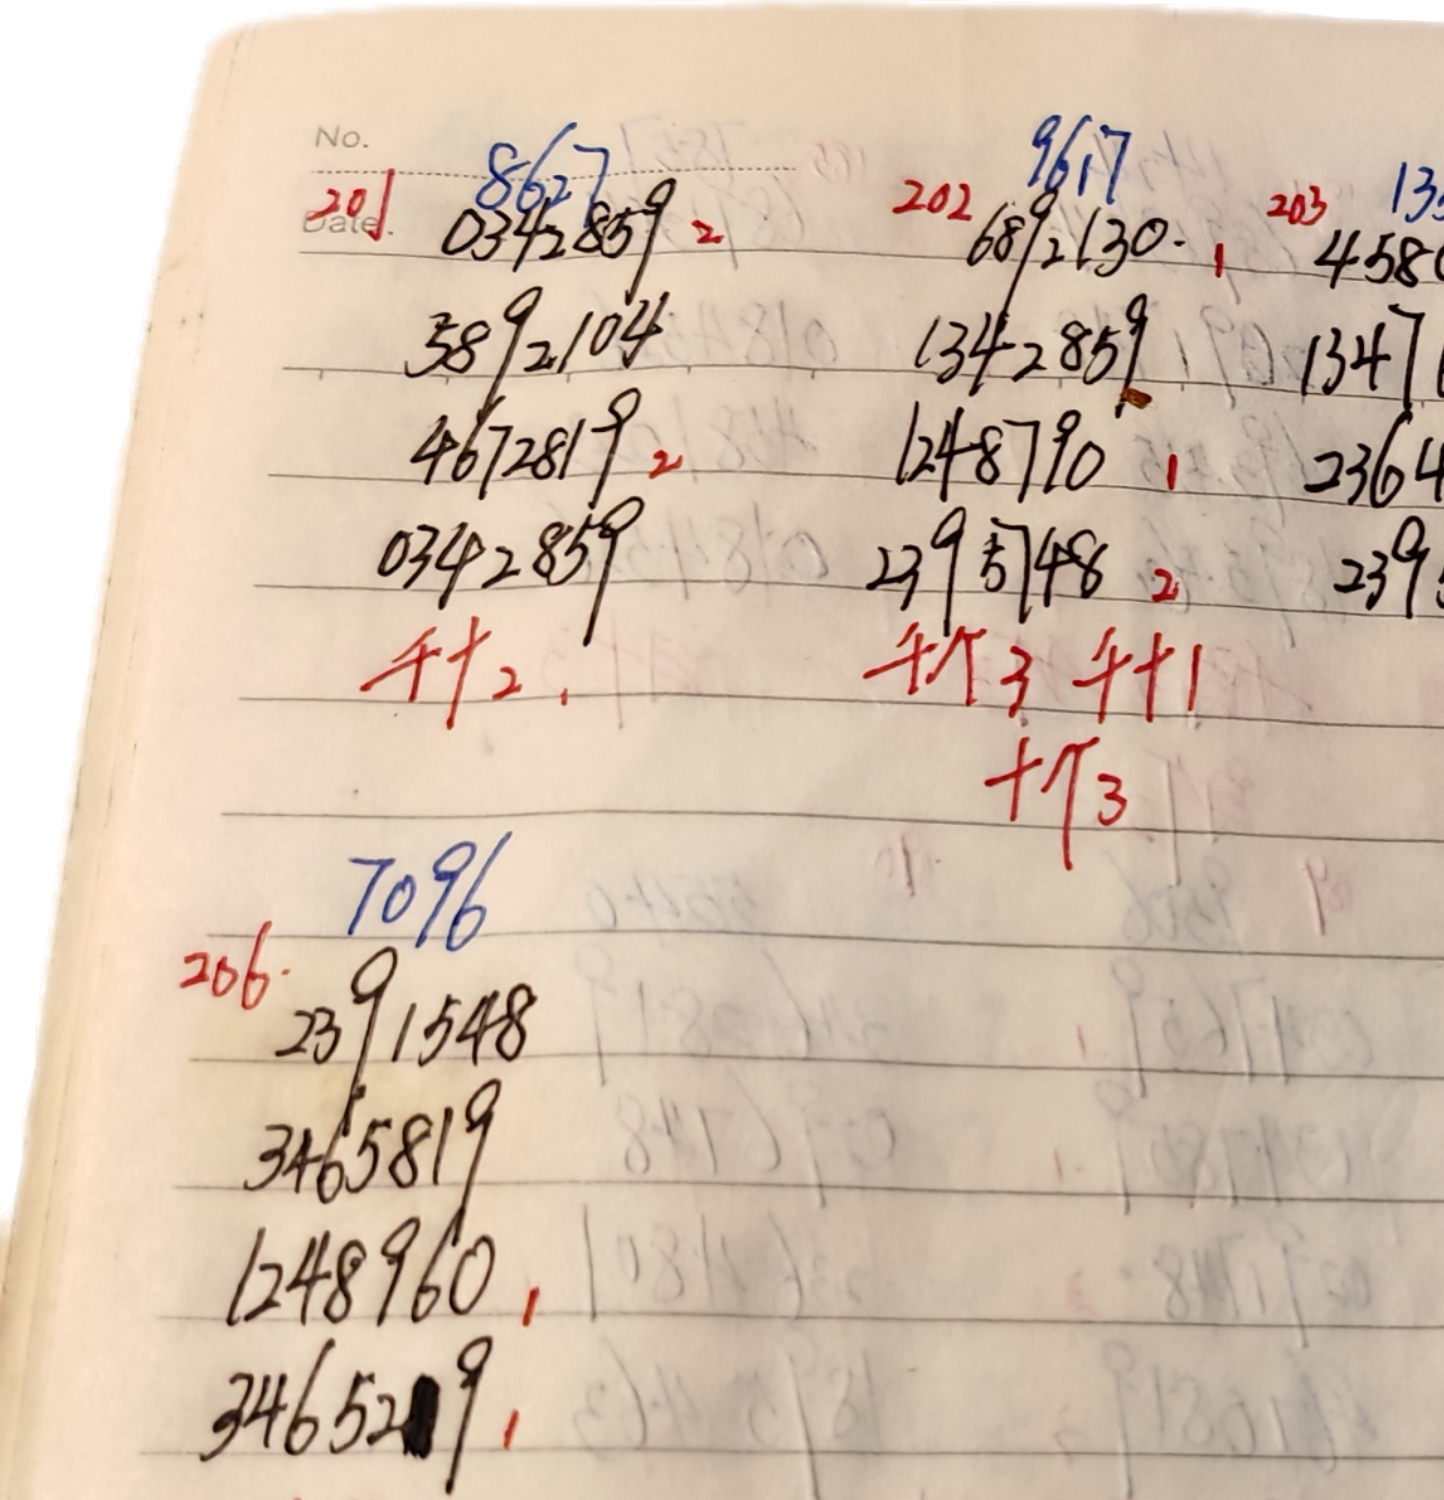 No.
Date.
201 8627
0342859 2
5892104
4672819 2
0342859
千十2
202 9617
6892130. 1
1342859
1248790 1
2395748 2
千个3 千十1
十个3
203
458
1347
2364
239
206. 7096
2391548
3465819
1248960 1
346529 1